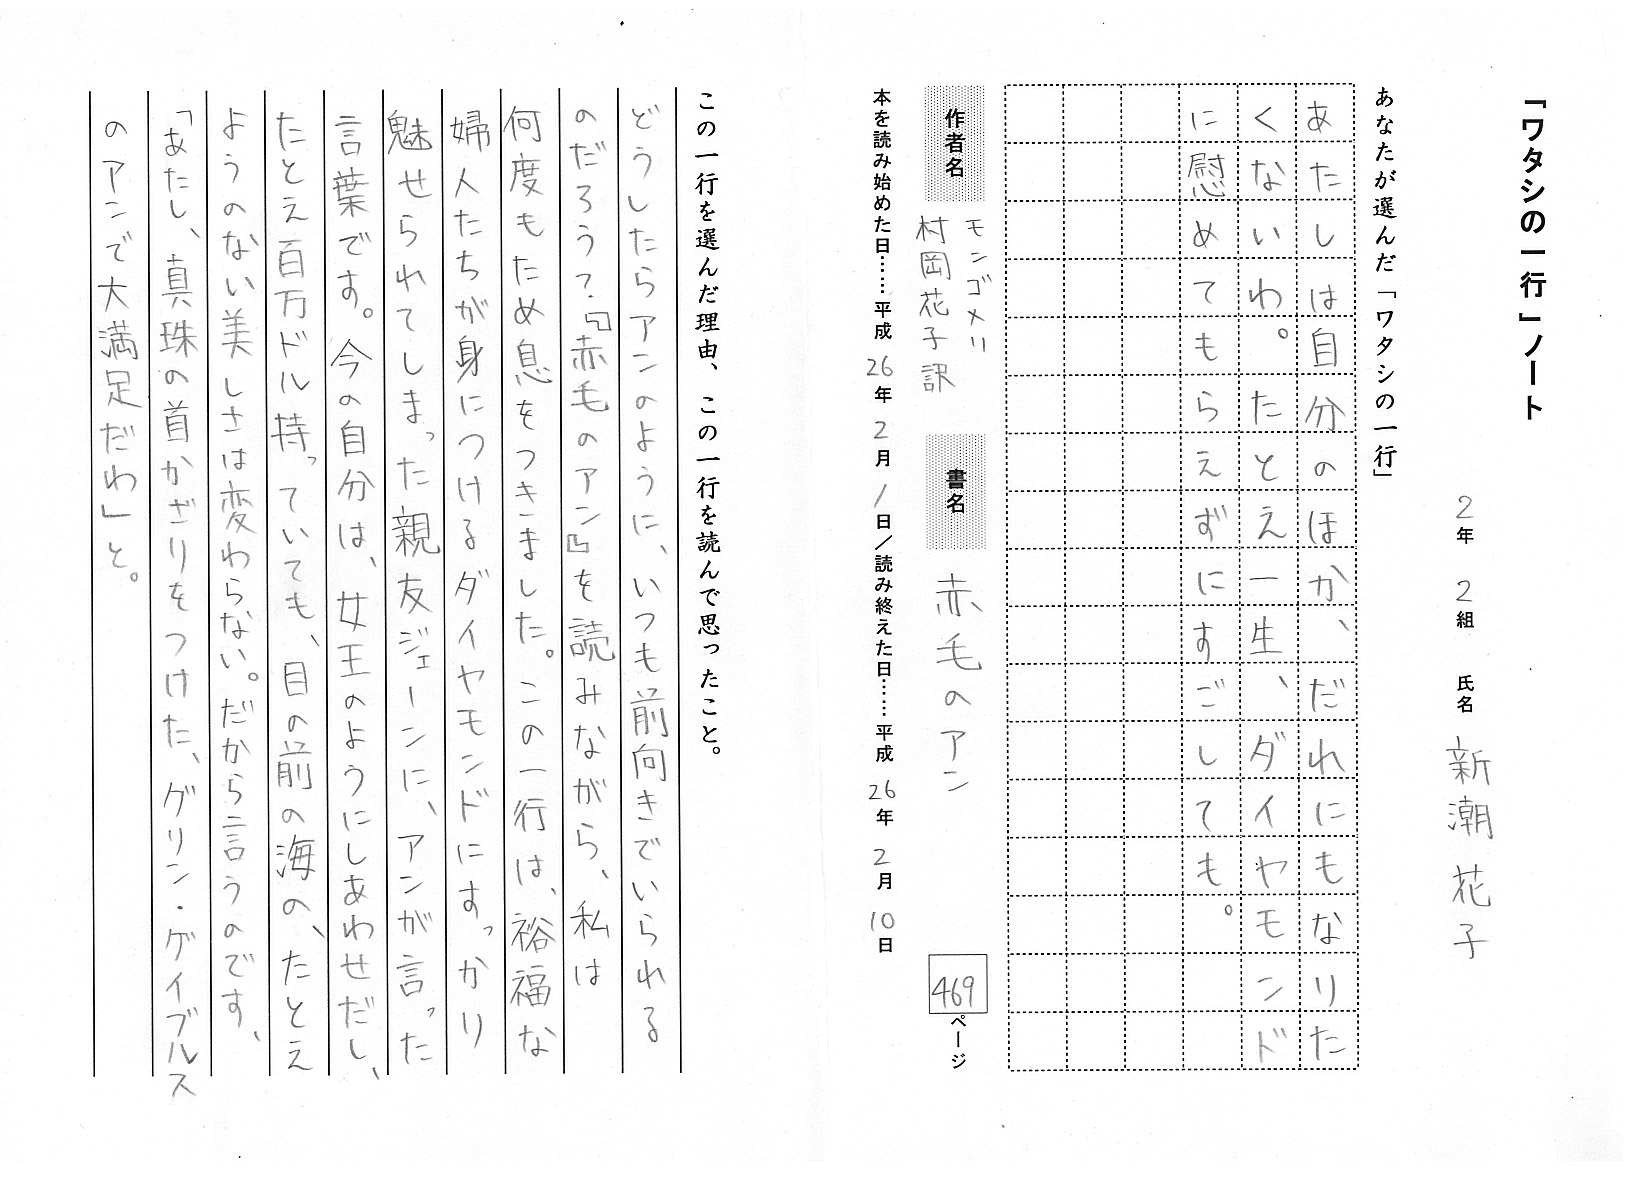 「ワタシの一行」ノート
2年 2組 氏名 新潮花子
あなたが選んだ「ワタシの一行」
あたしは自分のほか、だれにもなりた
くないわ。たとえ一生、ダイヤモンド
に慰めてもらえずにすごしても。
作者名 モンゴメリ
村岡花子訳
書名 赤毛のアン
469ページ
本を読み始めた日……平成26年2月1日/読み終えた日……平成26年2月10日
この一行を選んだ理由、この一行を読んで思ったこと。
どうしたらアンのように、いつも前向きでいられる
のだろう?『赤毛のアン』を読みながら、私は
何度もため息をつきました。この一行は、裕福な
婦人たちが身につけるダイヤモンドにすっかり
魅せられてしまった親友ジェーンに、アンが言った
言葉です。今の自分は、女王のようにしあわせだし、
たとえ百万ドル持っていても、目の前の海の、たとえ
ようのない美しさは変わらない。だから言うのです、
「あたし、真珠の首かざりをつけた、グリン・ゲイブルス
のアンで大満足だわ」と。